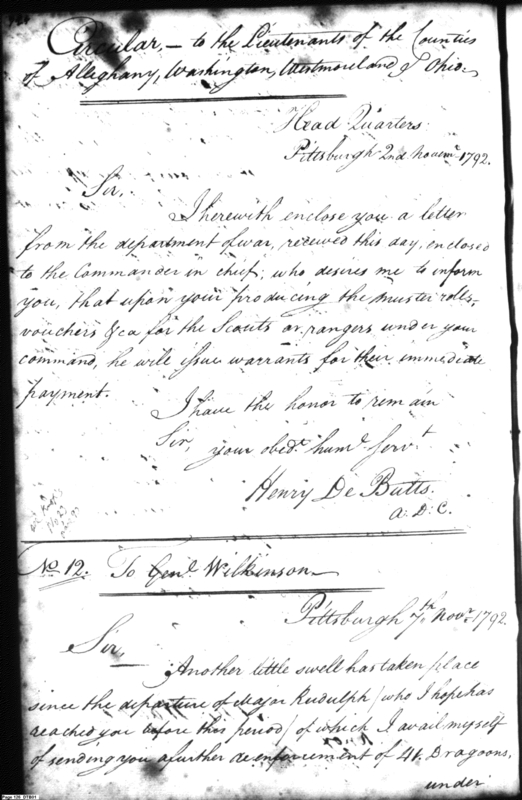 Circular, — to the Lieutenants of the Counties
of Alleghany, Washington, Westmoreland & Ohio.
Head Quarters
Pittsburgh 2nd Novemr. 1792.
Sir,
I herewith enclose you a letter
from the department of war, received this day, enclosed
to the Commander in chief; who desires me to inform
you, that upon your producing the muster rolls,
vouchers &ca for the Scouts or rangers under your
command, he will issue warrants for their immediate
payment.
I have the honor to remain
Sir,
your obedt. humle. servt.
Henry De Butts.
A: D: C.
No. 12. To Genl. Wilkinson
Pittsburgh 7th Novr. 1792.
Sir,
Another little swell has taken place
since the departure of Major Rudulph / who I hope has
reached you before this period / of which I avail myself
of sending you a further reenforcement of 41. Dragoons,
under